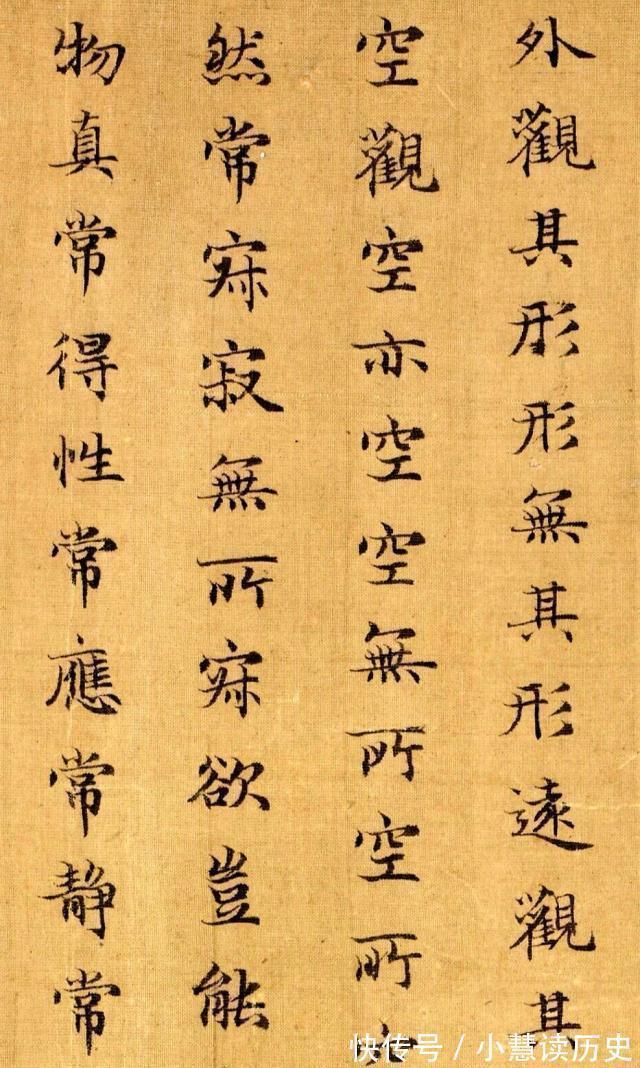 外觀其形形無其形遠觀其
空觀空亦空空無所空所
然常寂寂無所寂欲豈能
物真常得性常應常靜常
快传号 / 小慧读历史